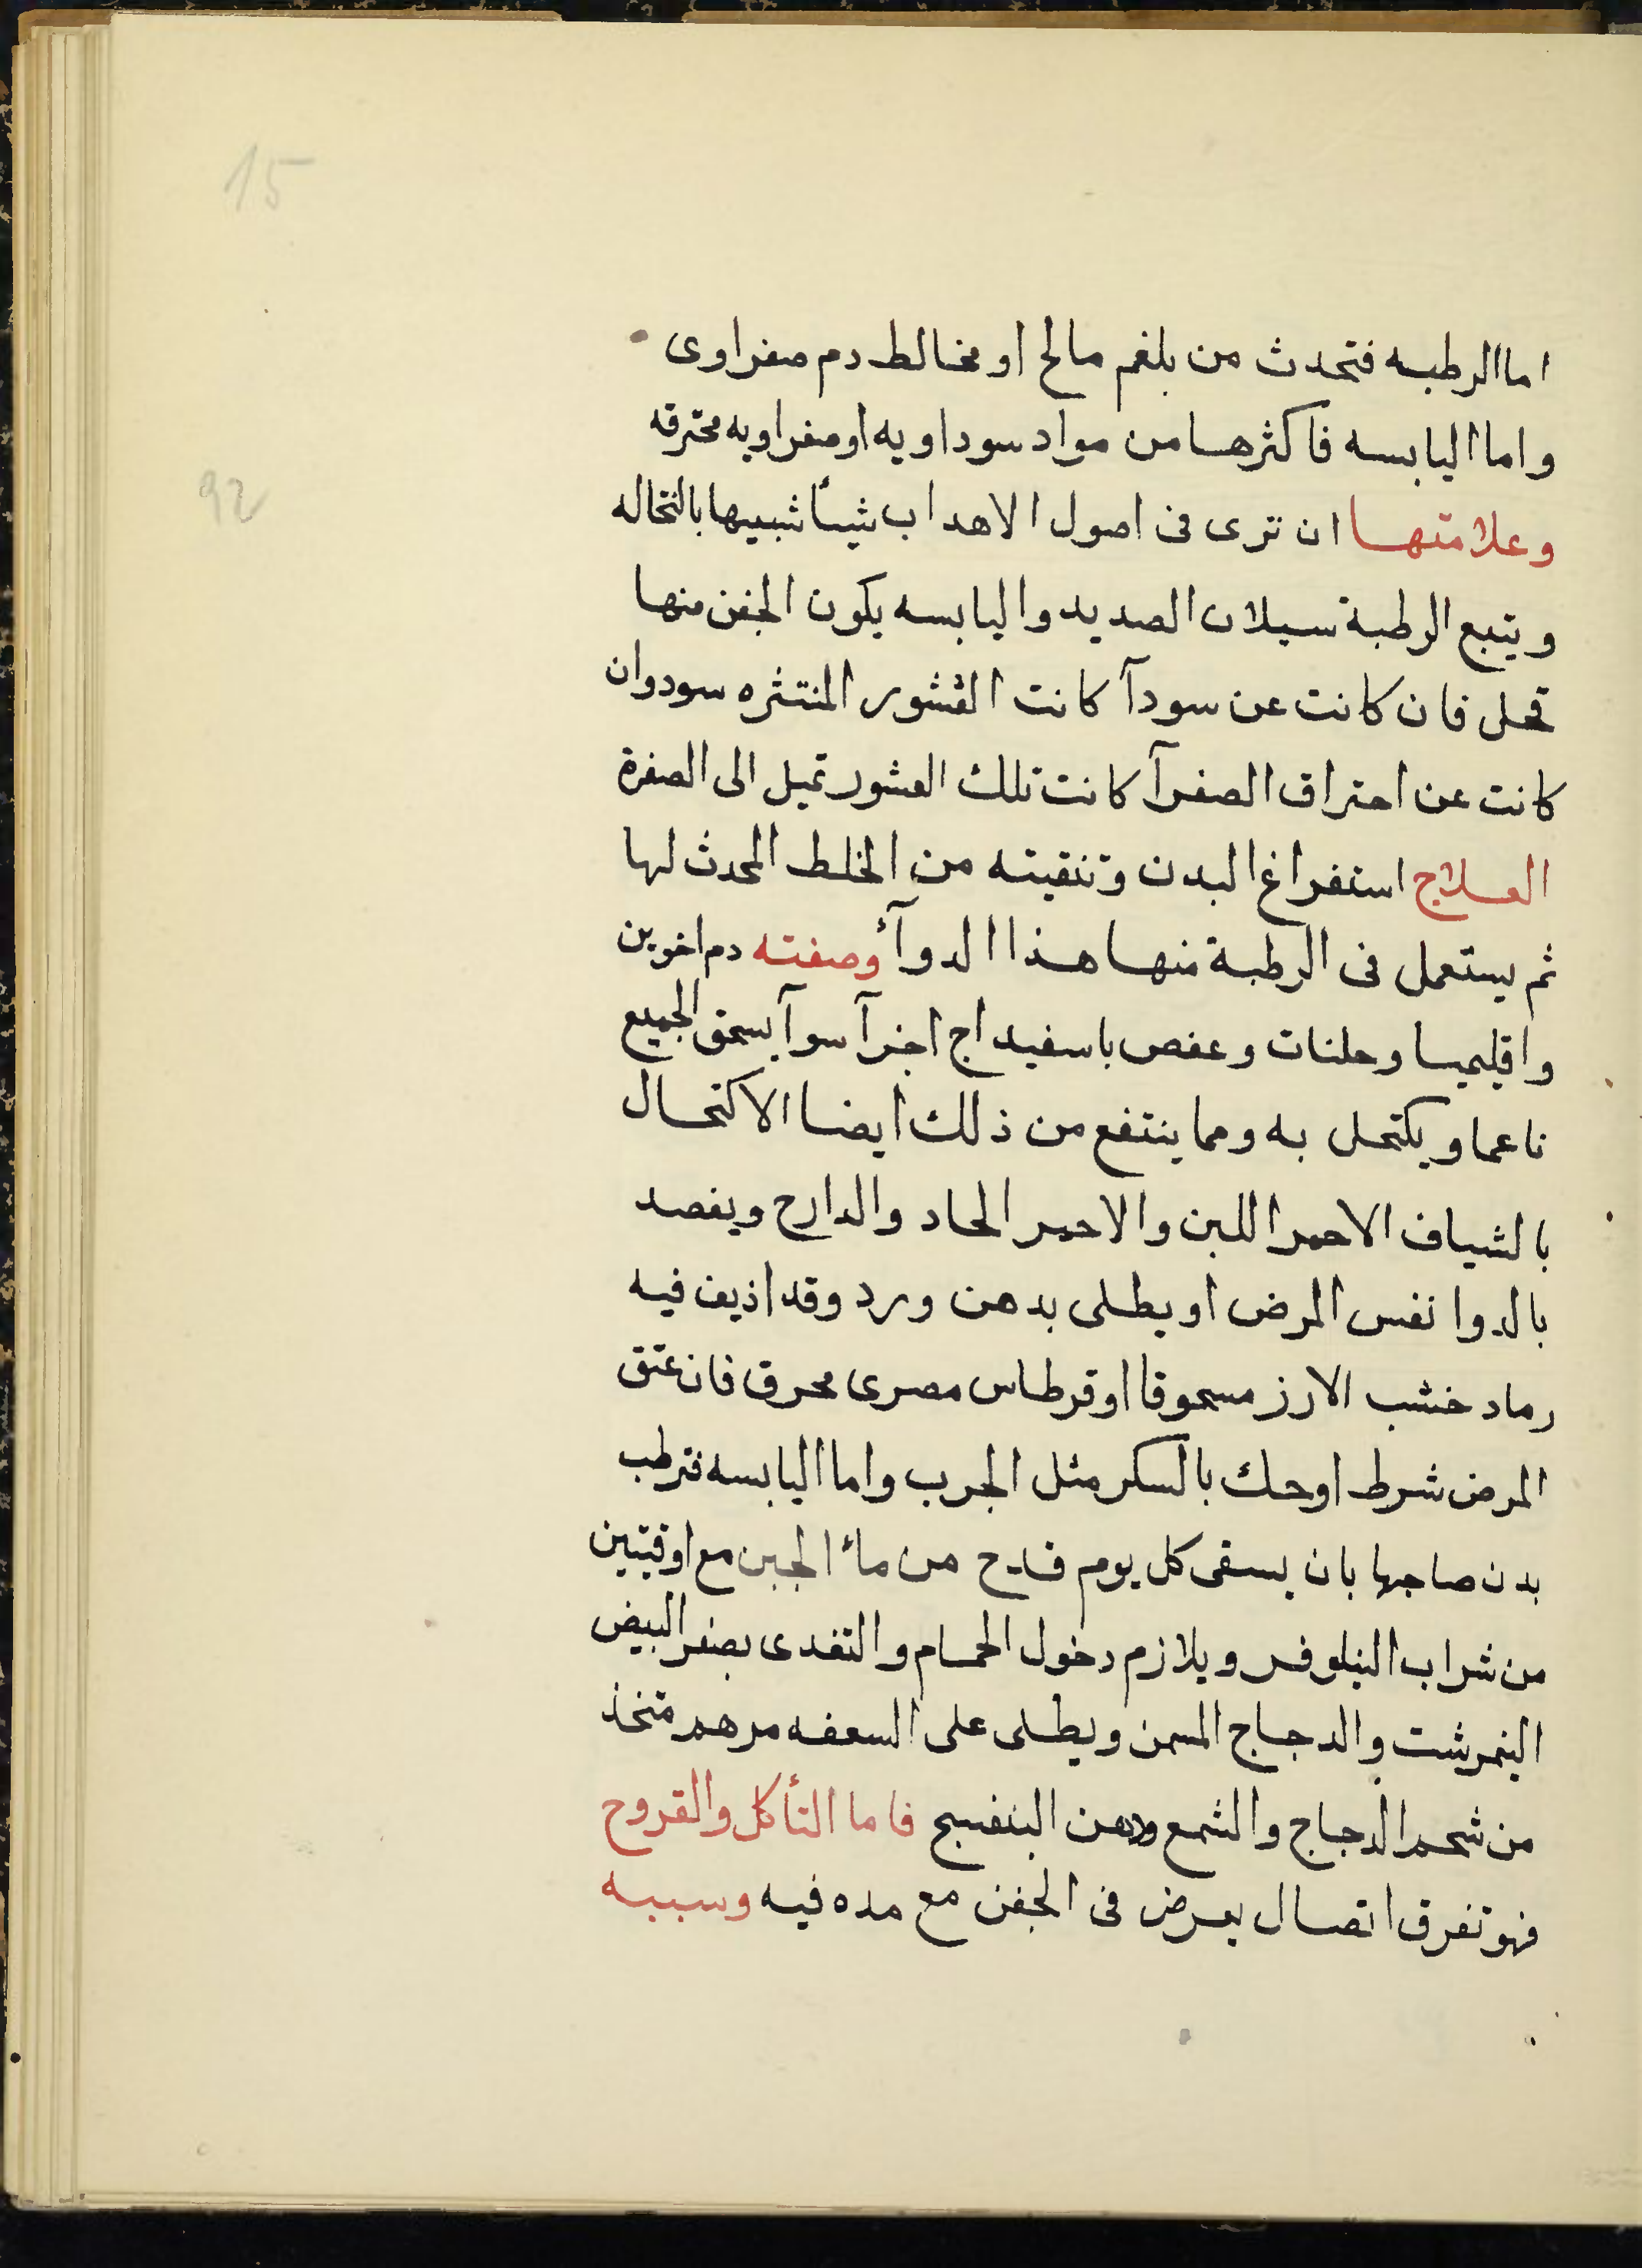 15
92
اما الرطبه فتحدث من بلغم مالح او مخالط دم صفراوى
واما اليابسه فاكثرها من مواد سوداويه او صفراويه محترقه
وعلامتها ان ترى فى اصول الاهداب شيئا شبيها بالنخاله
ويتبع الرطبة سيلان الصديد واليابسه يكون الجفن منها
قحل فان كانت عن سودآ كانت القشور المنتثره سود وان
كانت عن احتراق الصفرآ كانت تلك العشور تميل الى الصفرة
العلاج استفراغ البدن وتنقيته من الخلط المحدث لها
ثم يستعمل فى الرطبة منها هذا الدوآء وصفته دم اخوين
واقليميا وحلنات وعفص باسفيداج اجزآ سوآ يسحق الجميع
ناعما ويكتحل به ومما ينتفع من ذلك ايضا الاكتحال
بالشياف الاحمر اللين والاحمر الحاد والدارح ويفصد
بالدوا نفس المرض او يطلى بدهن ورد وقد اذيف فيه
رماد خشب الارز مسحوقا او قرطاس مصرى محرق فان عتق
المرض شرط او حك بالسكر مثل الجرب واما اليابسه فترطب
بدن صاحبها بان يسقى كل يوم قدح من مآء الجبن مع اوقيتين
من شراب النيلوفر ويلازم دخول الحمام والتغدى بصفر البيض
النمرشت والدجاج المسمن ويطلى على السعفه مرهم متخذ
من شحم الدجاج والشمع ودهن البنفسج فاما التأكل والقروح
فهو تفرق اتصال يعرض فى الجفن مع مده فيه وسببه